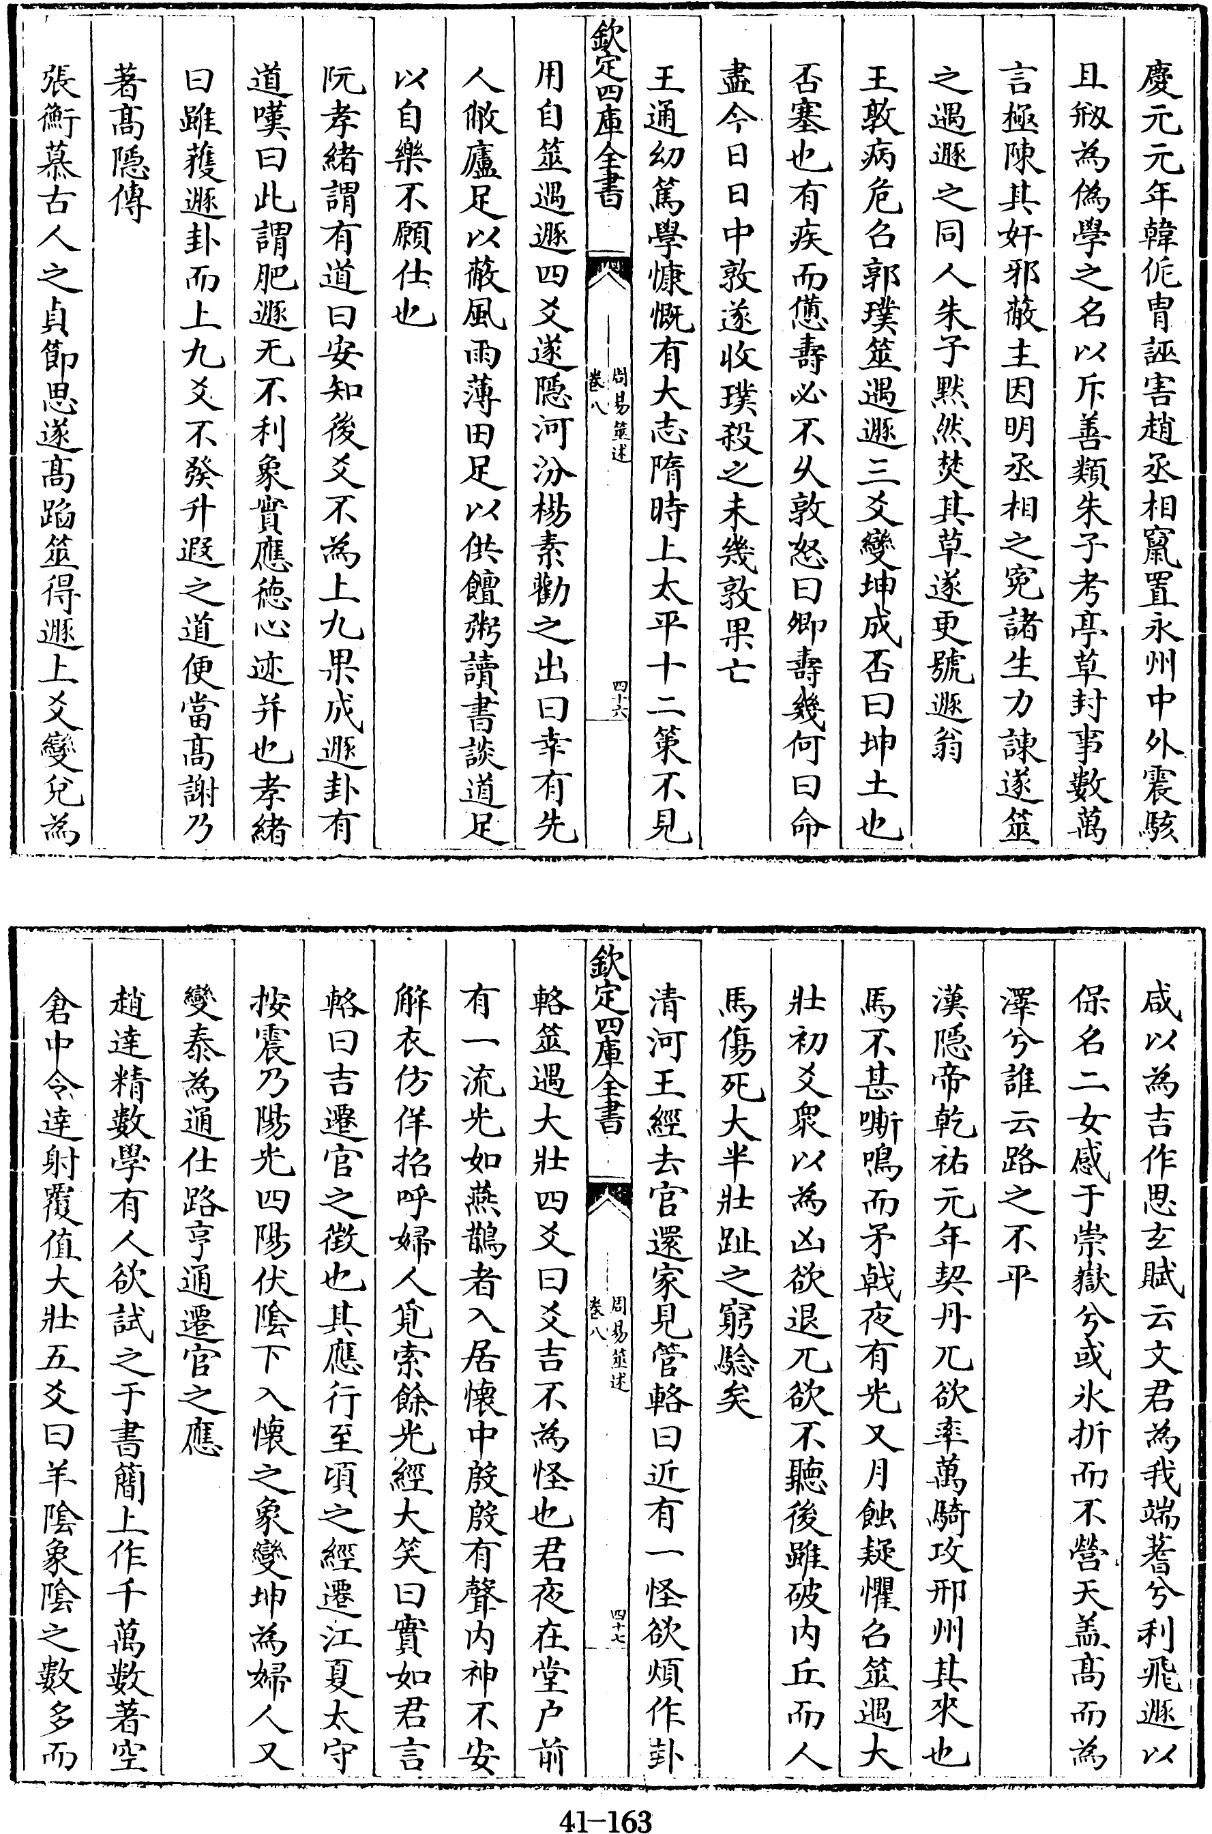 慶元元年韓侂胄誣害趙丞相竄置永州中外震駭
且剏為偽學之名以斥善類朱子考亭草封事數萬
言極陳其奸邪蔽主因明丞相之寃諸生力諫遂筮
之遇遯之同人朱子默然焚其草遂更號遯翁
王敦病危召郭璞筮遇遯三爻變坤成否曰坤土也
否塞也有疾而憊壽必不久敦怒曰卿壽幾何曰命
盡今日日中敦遂收璞殺之未幾敦果亡
王通幼篤學慷慨有大志隋時上太平十二策不見
欽定四庫全書
周易筮述
卷八
四十六
用自筮遇遯四爻遂隱河汾楊素勸之出曰幸有先
人敝廬足以蔽風雨薄田足以供饘粥讀書談道足
以自樂不願仕也
阮孝緒謂有道曰安知後爻不為上九果成遯卦有
道嘆曰此謂肥遯无不利象實應德心迹并也孝緒
曰雖獲遯卦而上九爻不發升遐之道便當高謝乃
著高隱傳
張衡慕古人之貞節思遂高蹈筮得遯上爻變兌為
咸以為吉作思玄賦云文君為我端蓍兮利飛遯以
保名二女感于崇嶽兮或氷折而不營天盖高而為
澤兮誰云路之不平
漢隱帝乾祐元年契丹兀欲率萬騎攻邢州其來也
馬不甚嘶鳴而矛戟夜有光又月蝕疑懼召筮遇大
壯初爻衆以為凶欲退兀欲不聽後雖破内丘而人
馬傷死大半壯趾之窮驗矣
清河王經去官還家見管輅曰近有一怪欲煩作卦
欽定四庫全書
周易筮述
卷八
四十七
輅筮遇大壯四爻曰爻吉不為怪也君夜在堂户前
有一流光如燕鵲者入居懷中殷殷有聲内神不安
解衣仿佯招呼婦人覓索餘光經大笑曰實如君言
輅曰吉遷官之徴也其應行至頃之經遷江夏太守
按震乃陽光四陽伏隂下入懷之象變坤為婦人又
變泰為通仕路亨通遷官之應
趙達精數學有人欲試之于書簡上作千萬數著空
倉中令達射覆值大壯五爻曰羊隂象隂之數多而
41-163